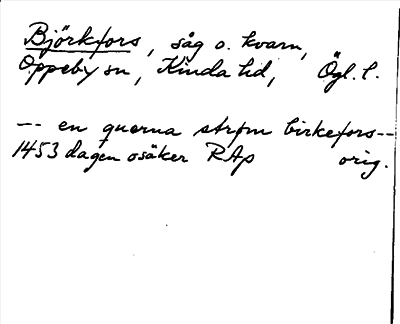 Björkfors, såg o. kvarn,
Oppeby sn, Kinda hd, Ögl. l.
-- en querna strøm birkefors--
1453 dagen osäker RAp orig.